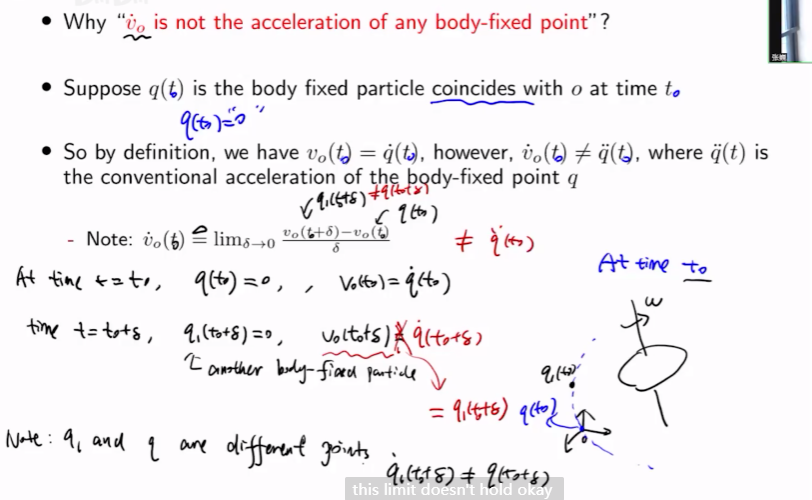 • Why "v̇ₒ is not the acceleration of any body-fixed point"?
• Suppose q(t₀) is the body fixed particle coincides with o at time t₀
q(t₀)="0"
• So by definition, we have vₒ(t₀) = q̇(t₀), however, v̇ₒ(t₀) ≠ q̈(t₀), where q̈(t) is
the conventional acceleration of the body-fixed point q
q̇₁(t₀+δ) ≠ q̇(t₀+δ)
q̇(t₀)
- Note: v̇ₒ(t₀) ≜ lim_{δ→0} (vₒ(t₀+δ)−vₒ(t₀))/δ ≠ q̈(t₀)
At time t=t₀, q(t₀)=0, , vₒ(t₀)=q̇(t₀)
At time t₀
ω
time t=t₀+δ, q₁(t₀+δ)=0, vₒ(t₀+δ) q̇(t₀+δ)
another body-fixed particle
= q̇₁(t₀+δ)
q₁(t₀)
q(t₀)
o
Note: q₁ and q are different points.
q̇₁(t₀+δ) ≠ q̇(t₀+δ)
this limit doesn't hold okay
张巍